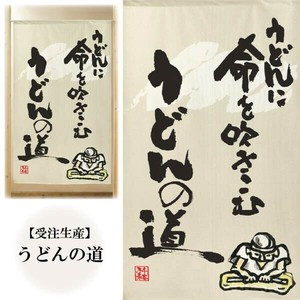 うどんに
命を吹きこむ
うどんの道
うどんに
命を吹きこむ
うどんの道
【受注生産】
うどんの道